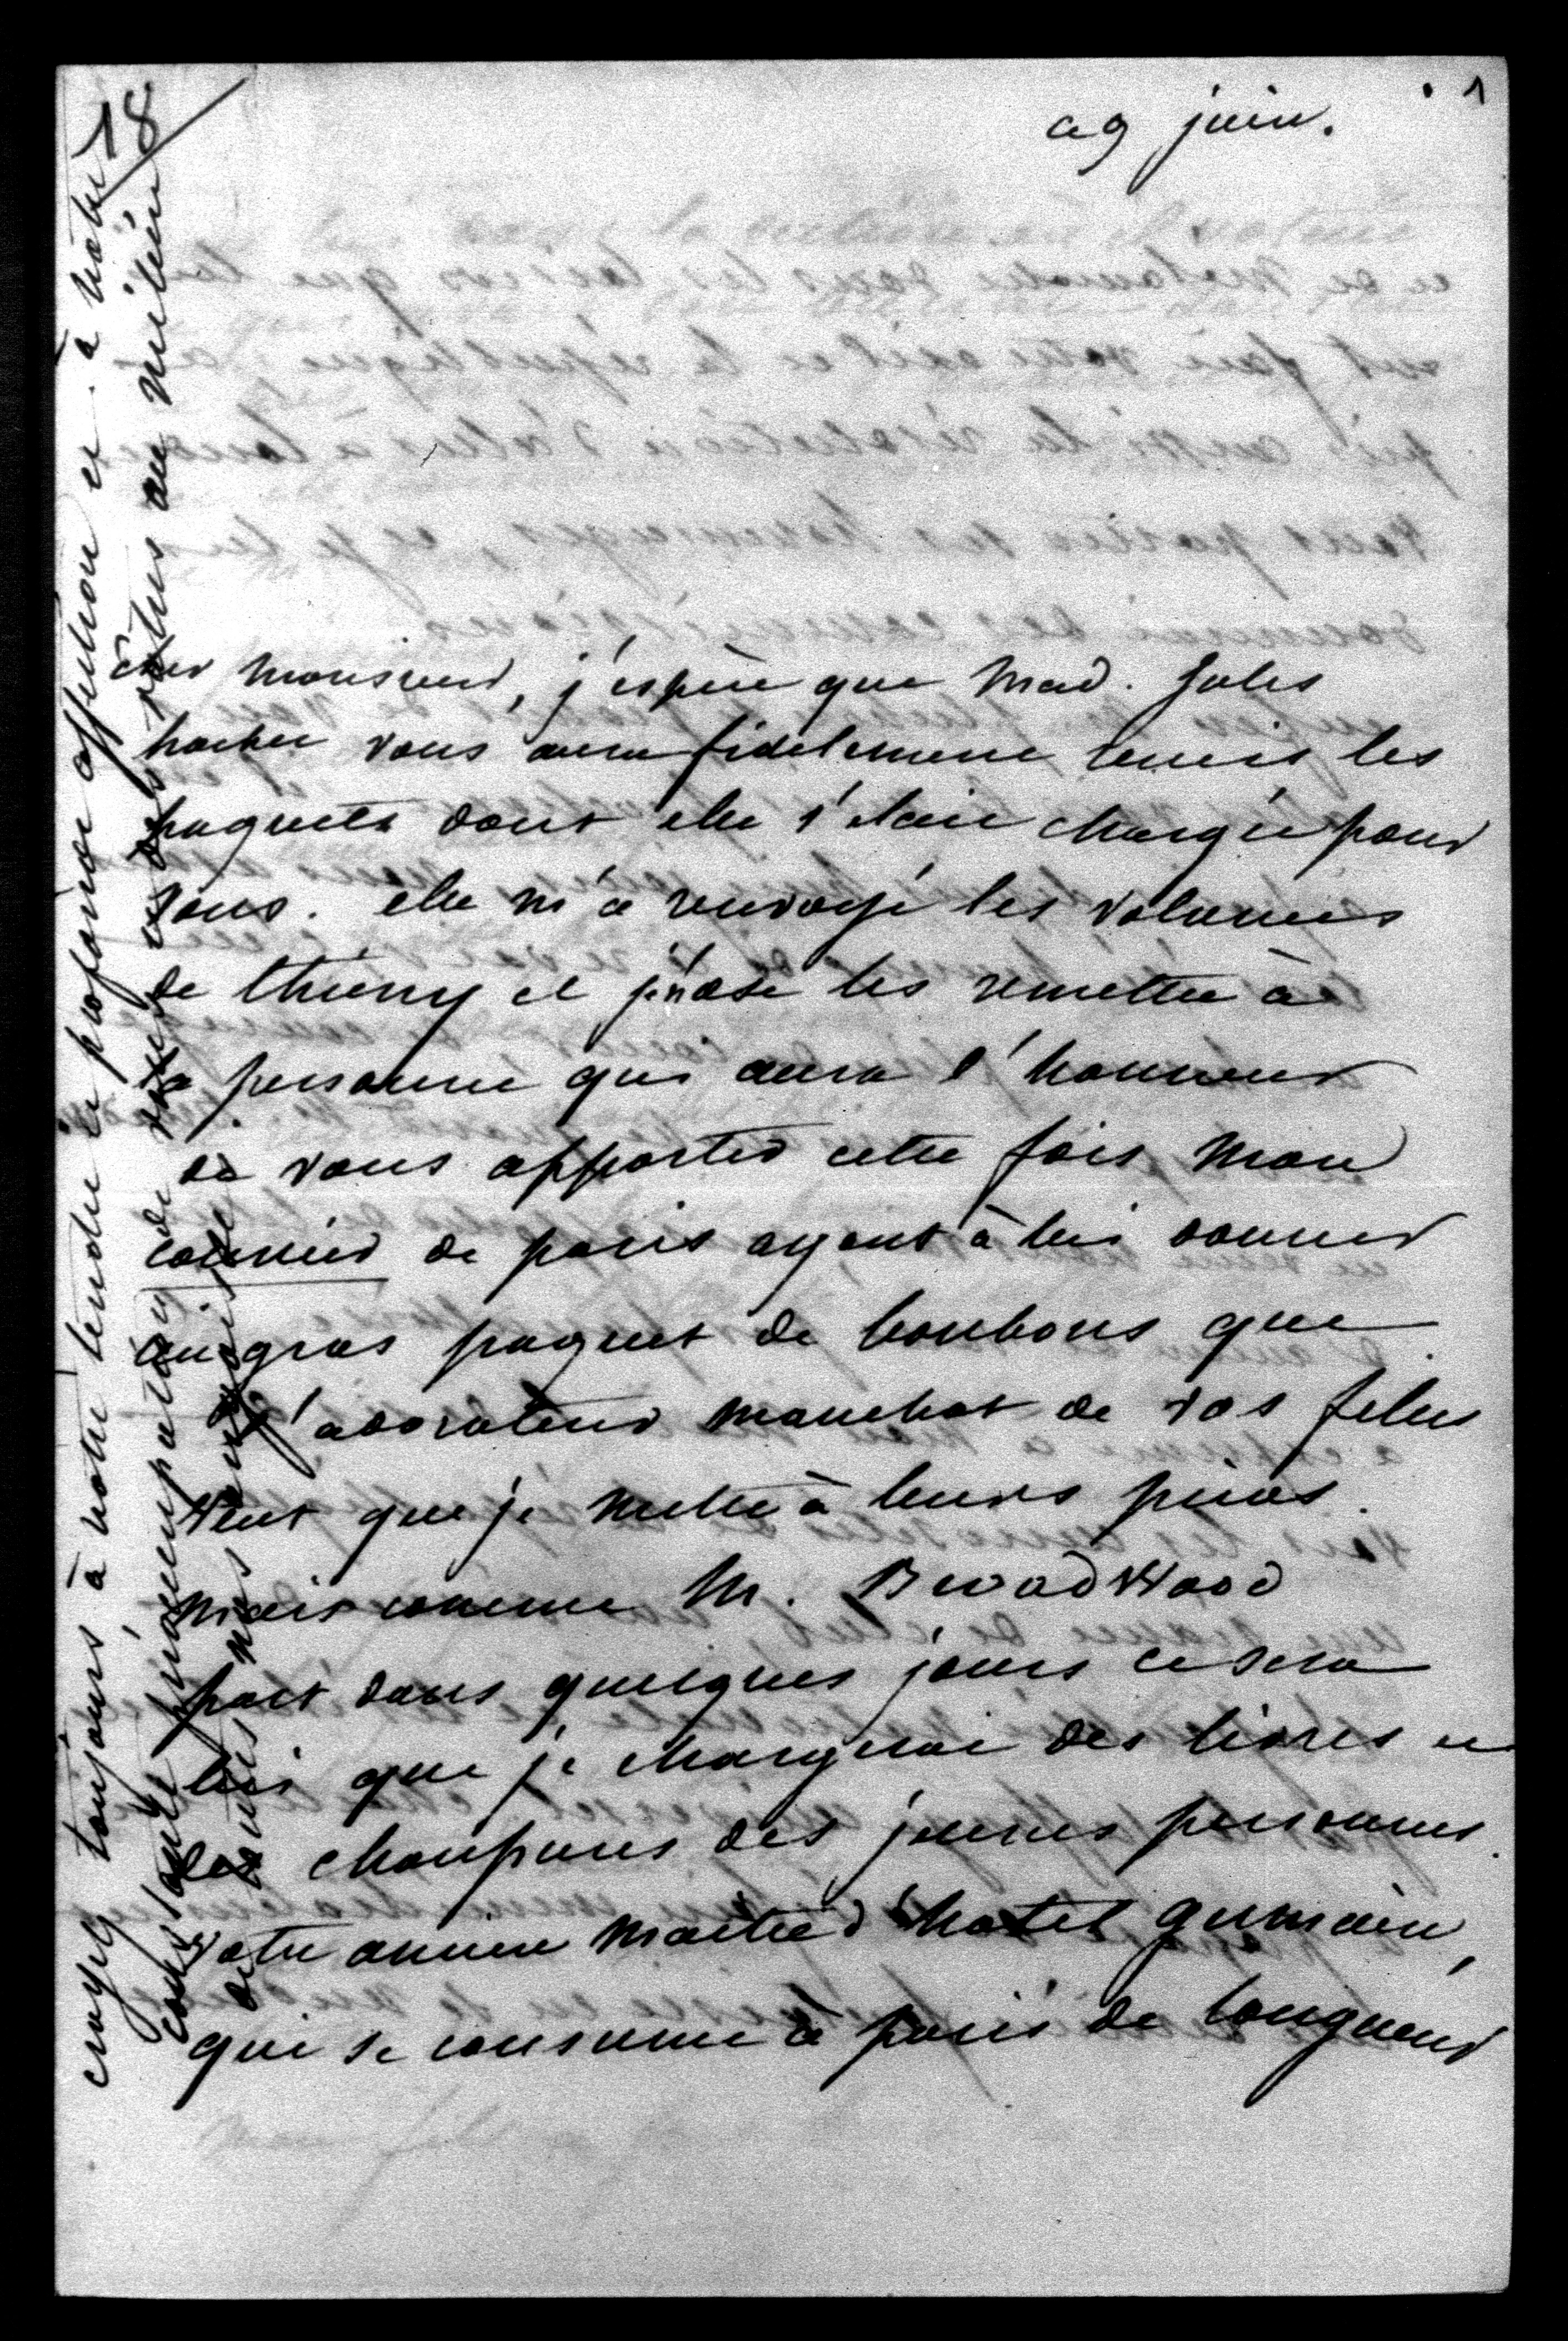 18
1
ce 9 juin.
cher monsieur, j'espère que Mad. Jules
vous aura fidelement remis les
paquets dont elle s'était chargée pour
vous. elle m'a renvoyé les volumes
de thierry et je n'ose les remettre à
la personne qui aura l'honneur
de vous apporter cette fois mon
courrier de paris ayant à lui donner
un gros paquet de bonbons que
l'adorateur manchot de vos filles
veut que je mette à leurs pieds.
mais comme M. Broadwood
part dans quelques jours ce sera
lui que je chargerai des livres et
des chaussures des jeunes personnes.
votre ancien maître d'hotel germain,
qui se consume à paris de longueur
croyez toujours à notre tendre et profonde affection et à notre
constante préoccupation de vous et des vôtres au milieu
de toutes nos